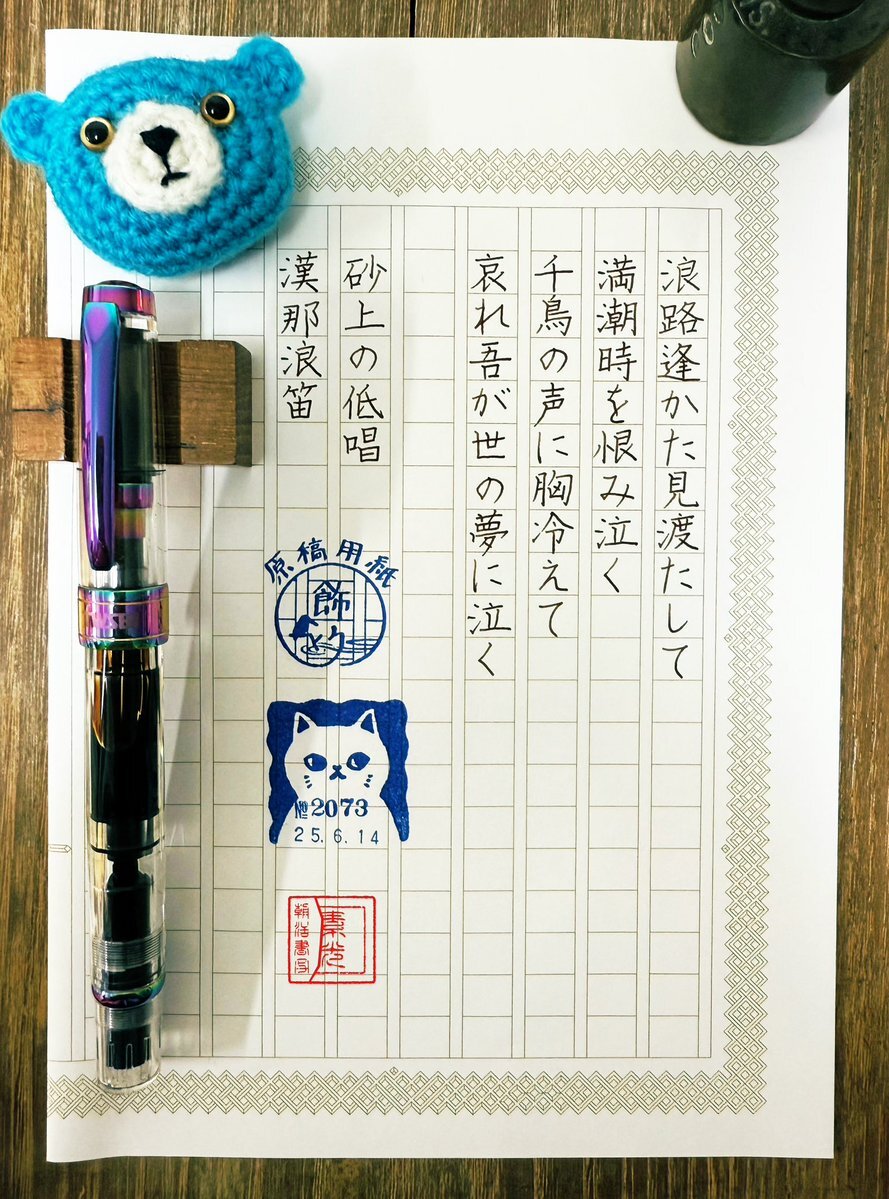 浪路逢かた見渡たして
満潮時を恨み泣く
千鳥の声に胸冷えて
哀れ吾が世の夢に泣く
砂上の低唱
漢那浪笛
原稿用紙
飾
№2073
25.6.14